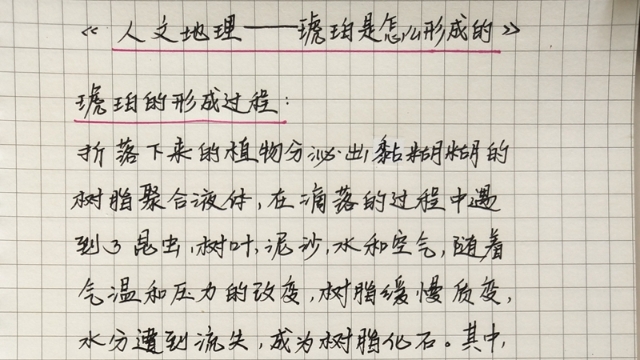 《人文地理——琥珀是怎么形成的》
琥珀的形成过程：
折落下来的植物分泌出黏糊糊的
树脂聚合液体，在滴落的过程中遇
到了昆虫，树叶，泥沙，水和空气，随着
气温和压力的改变，树脂缓慢质变，
水分遭到流失，成为树脂化石。其中，